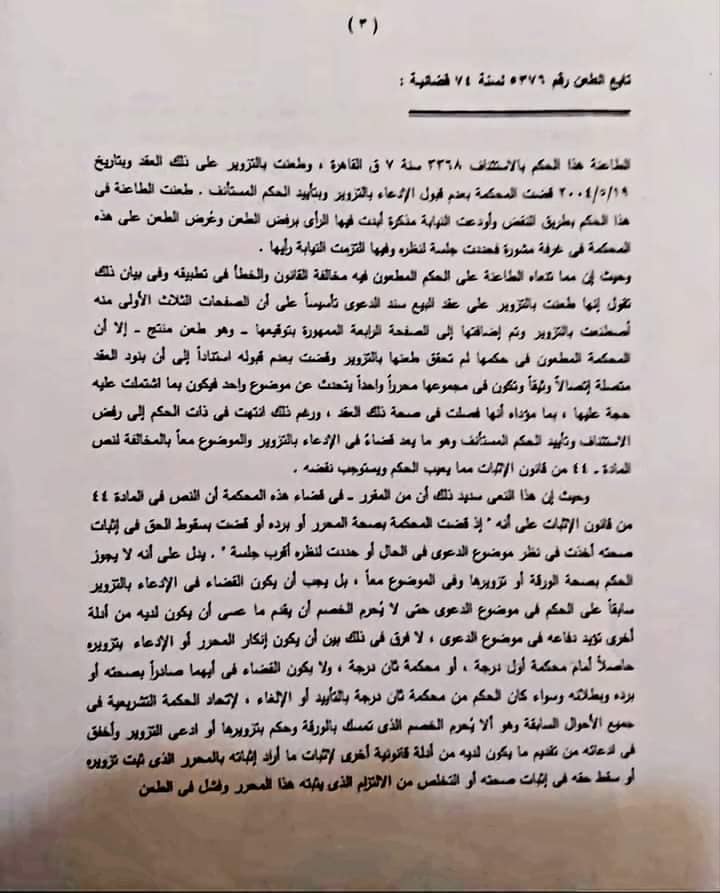 ( ٣ )
تابع الطعن رقم ٥٣٧٦ لسنة ٧٤ قضائية :
الطاعنة هذا الحكم بالاستئناف ٣٣٦٨ سنة ٧ ق القاهرة ، وطعنت بالتزوير على ذلك العقد وبتاريخ
٢٠٠٤/٥/١٩ قضت المحكمة بعدم قبول الإدعاء بالتزوير وبتأييد الحكم المستأنف . طعنت الطاعنة فى
هذا الحكم بطريق النقض وأودعت النيابة مذكرة أبدت فيها الرأى برفض الطعن وعُرض الطعن على هذه
المحكمة فى غرفة مشورة فحددت جلسة لنظره وفيها التزمت النيابة رأيها .
وحيث إن مما تنعاه الطاعنة على الحكم المطعون فيه مخالفة القانون والخطأ فى تطبيقه وفى بيان ذلك
تقول إنها طعنت بالتزوير على عقد البيع سند الدعوى تأسيساً على أن الصفحات الثلاث الأولى منه
أصطنعت بالتزوير وتم إضافتها إلى الصفحة الرابعة الممهورة بتوقيعها ـ وهو طعن منتج ـ إلا أن
المحكمة المطعون فى حكمها لم تحقق طعنها بالتزوير وقضت بعدم قبوله استناداً إلى أن بنود العقد
متصلة إتصالاً وثيقاً وتكون فى مجموعها محرراً واحداً يتحدث عن موضوع واحد فيكون بما اشتملت عليه
حجة عليها ، بما مؤداه أنها فصلت فى صحة ذلك العقد ، ورغم ذلك انتهت فى ذات الحكم إلى رفض
الاستئناف وتأييد الحكم المستأنف وهو ما يعد قضاءً فى الإدعاء بالتزوير والموضوع معاً بالمخالفة لنص
المادة ـ ٤٤ من قانون الإثبات مما يعيب الحكم ويستوجب نقضه .
وحيث إن هذا النعى سديد ذلك أن من المقرر ـ فى قضاء هذه المحكمة أن النص فى المادة ٤٤
من قانون الإثبات على أنه " إذ قضت المحكمة بصحة المحرر أو برده أو قضت بسقوط الحق فى إثبات
صحته أخذت فى نظر موضوع الدعوى فى الحال أو حددت لنظره أقرب جلسة " . يدل على أنه لا يجوز
الحكم بصحة الورقة أو تزويرها وفى الموضوع معاً ، بل يجب أن يكون القضاء فى الإدعاء بالتزوير
سابقاً على الحكم فى موضوع الدعوى حتى لا يُحرم الخصم أن يقدم ما عسى أن يكون لديه من أدلة
أخرى تؤيد دفاعه فى موضوع الدعوى ، لا فرق فى ذلك بين أن يكون إنكار المحرر أو الإدعاء بتزويره
حاصلاً أمام محكمة أول درجة ، أو محكمة ثان درجة ، ولا يكون القضاء فى أيهما صادراً بصحته أو
برده وبطلانه وسواء كان الحكم من محكمة ثان درجة بالتأييد أو الإلغاء ، لإتحاد الحكمة التشريعية فى
جميع الأحوال السابقة وهو ألا يُحرم الخصم الذى تمسك بالورقة وحكم بتزويرها أو ادعى التزوير وأخفق
فى ادعائه من تقديم ما يكون لديه من أدلة قانونية أخرى لإثبات ما أراد إثباته بالمحرر الذى ثبت تزويره
أو سقط حقه فى إثبات صحته أو التخلص من الالتزام الذى يثبته هذا المحرر وفشل فى الطعن